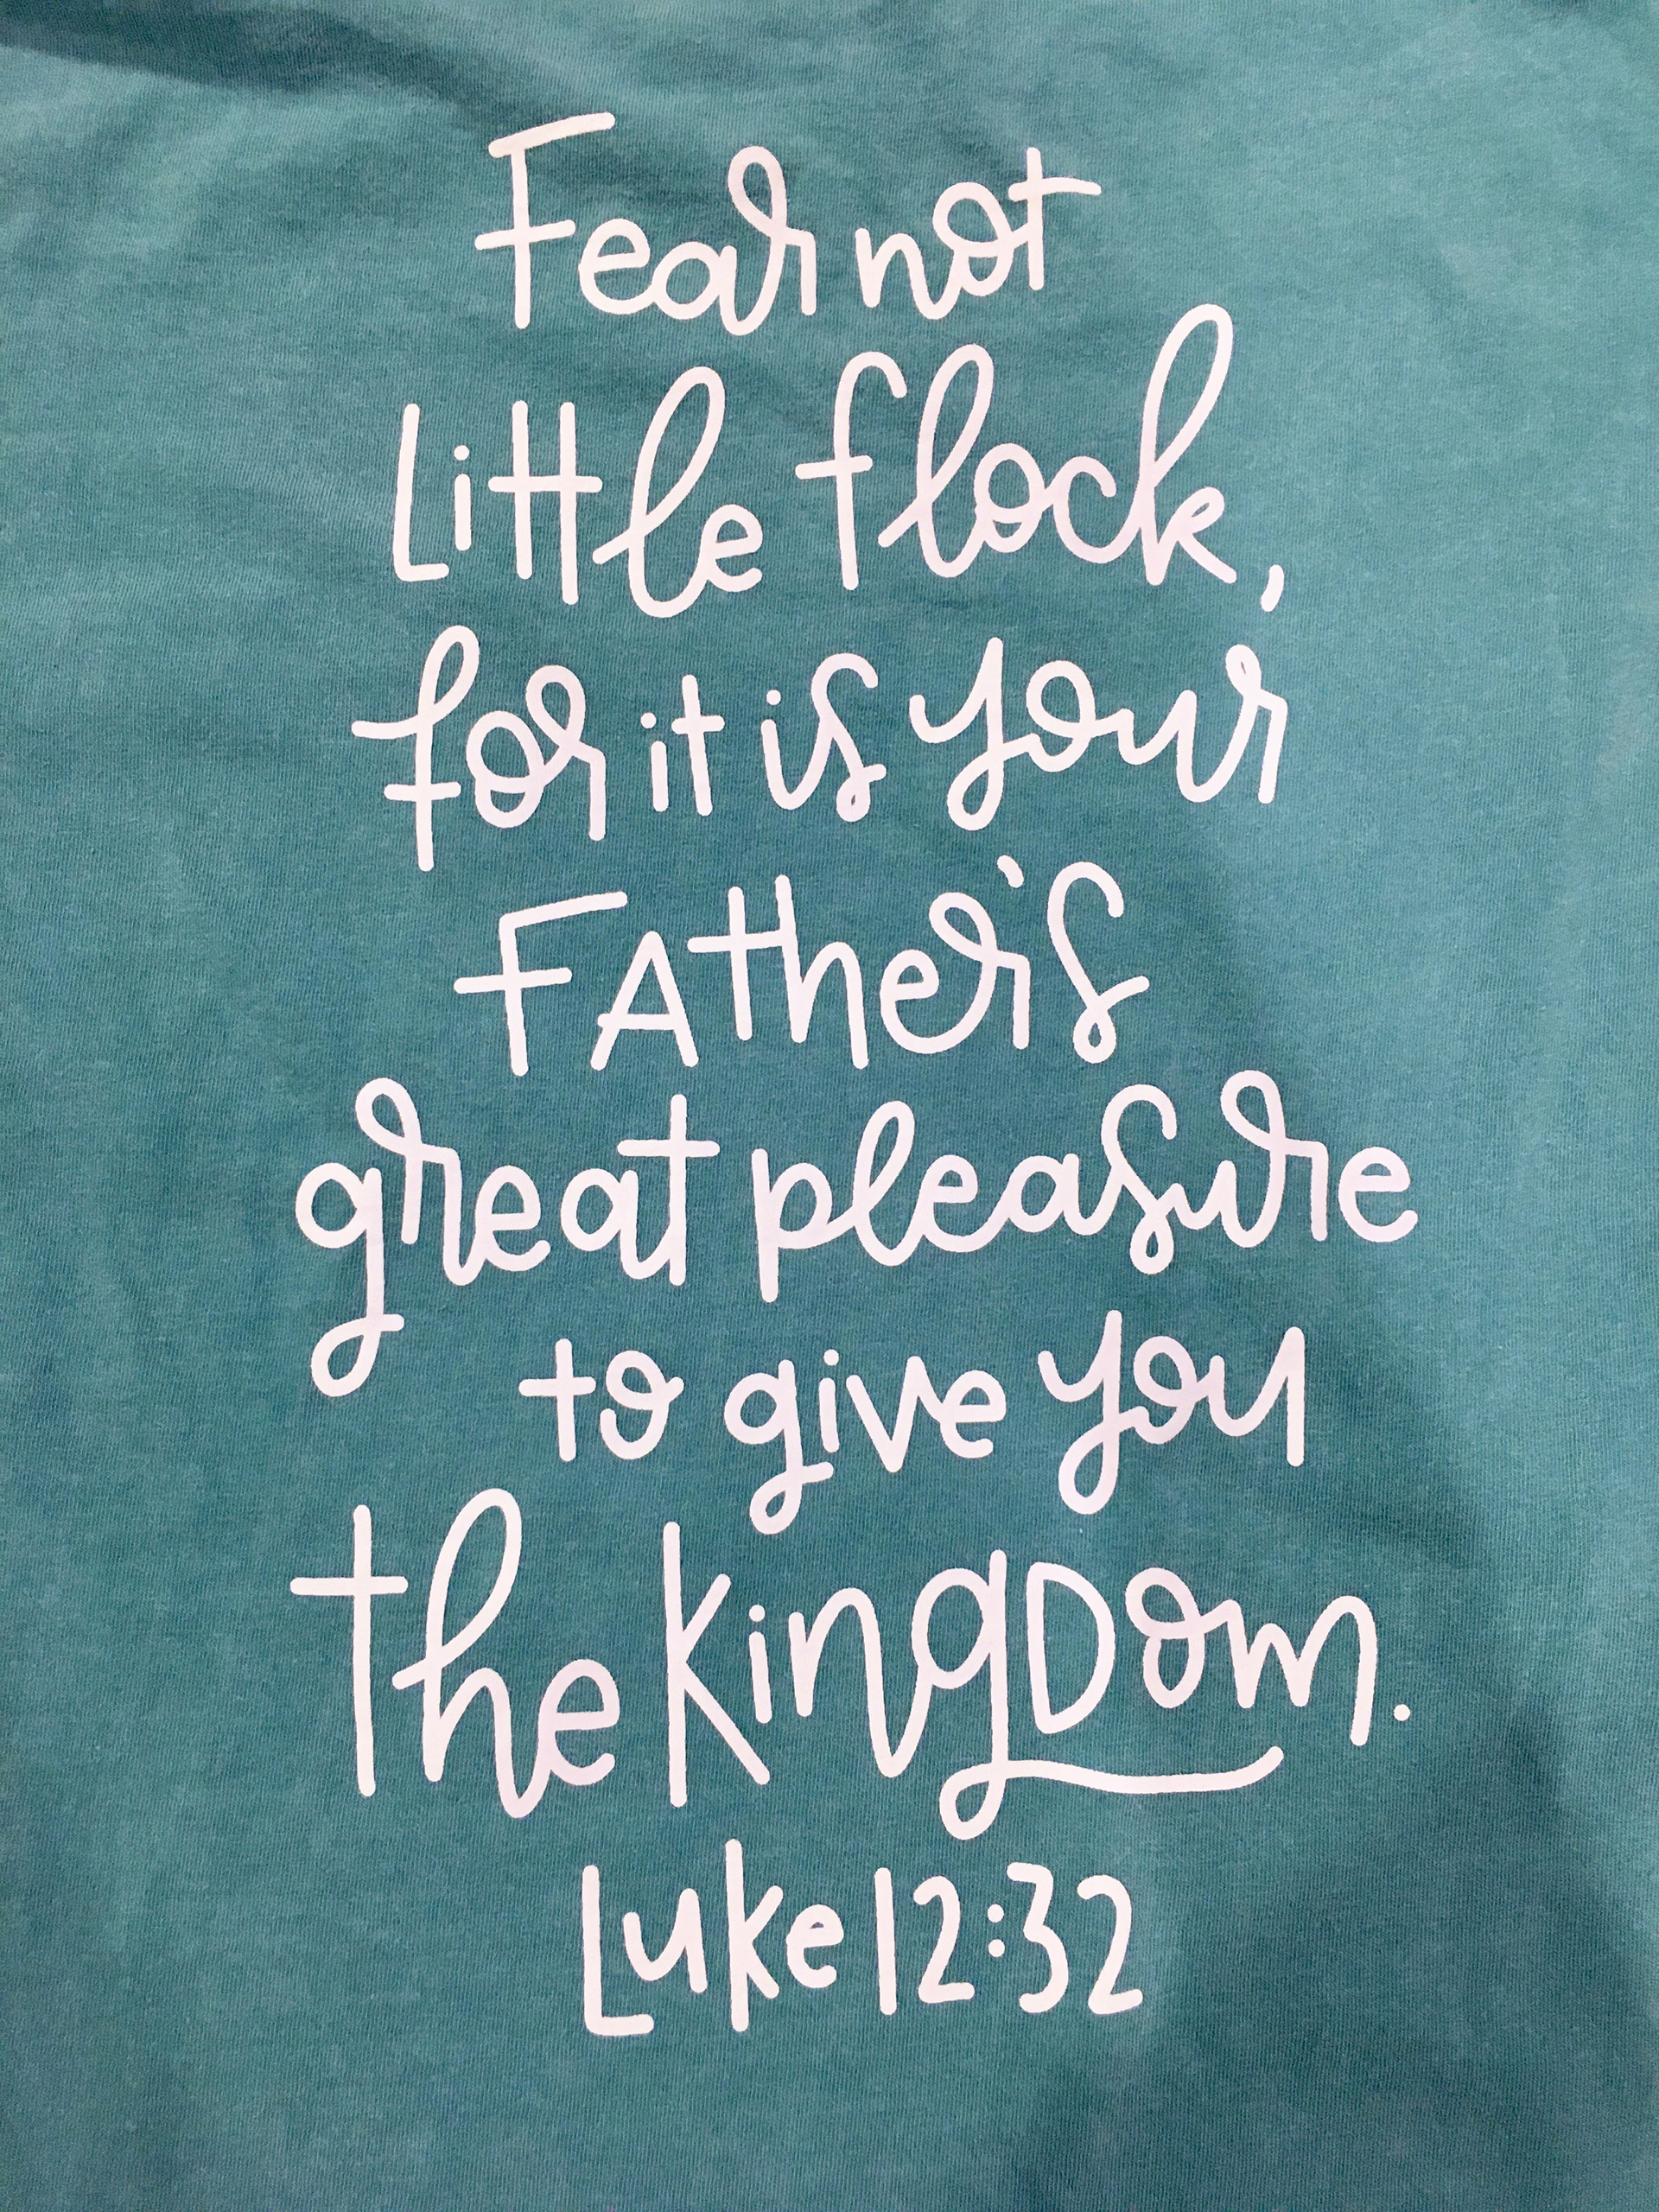 Fear not
Little flock,
for it is your
FAther's
great pleasure
to give you
the KingDom.
Luke 12:32